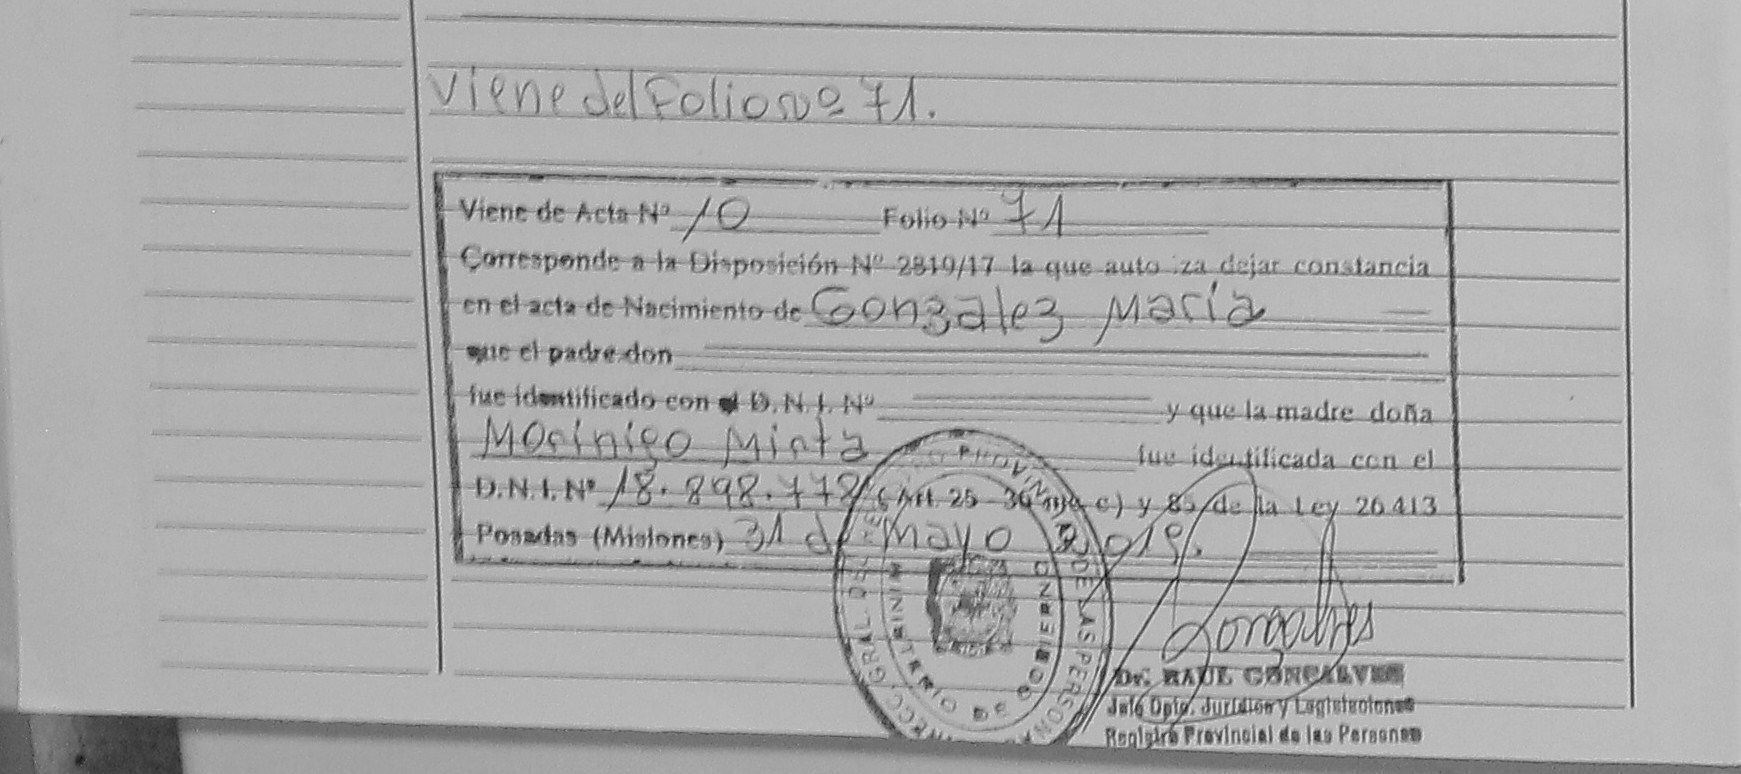 Viene del Folio Nº 71.
Viene de Acta Nº 10 Folio Nº 71
Corresponde a la Disposición Nº 2819/17 la que auto iza dejar constancia
en el acta de Nacimiento de Gonzalez María
que el padre don
fue identificado con el D.N.I. Nº y que la madre doña
Morinigo Mirta fue identificada con el
D.N.I. Nº 18.898.778 (Art. 25 - 36 c) y 85 de la Ley 26413
Posadas (Misiones) 31 de Mayo 2019.
Gonçalves
Dr. RAUL GONÇALVES
Jefe Dpto. Jurídico y Legislaciones
Registro Provincial de las Personas
DIRECC. GRAL. DEL PROVIN DE LAS PERSONAS
MINISTERIO DE GOBIERNO